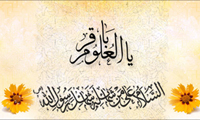 یا باقر العلوم
السلام علیک یا محمد بن علی یابن رسول الله